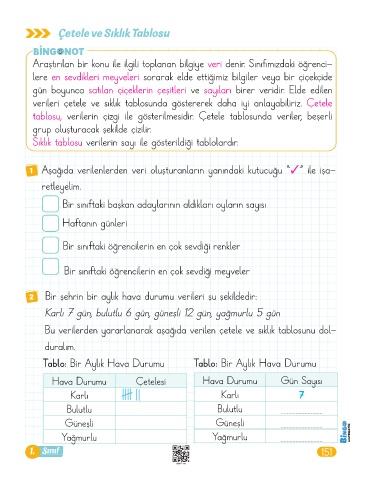 Çetele ve Sıklık Tablosu
BİNGO NOT
Araştırılan bir konu ile ilgili toplanan bilgiye veri denir. Sınıfımızdaki öğrenci-
lere en sevdikleri meyveleri sorarak elde ettiğimiz bilgiler veya bir çiçekçide
gün boyunca satılan çiçeklerin çeşitleri ve sayıları birer veridir. Elde edilen
verileri çetele ve sıklık tablosunda göstererek daha iyi anlayabiliriz. Çetele
tablosu, verilerin çizgi ile gösterilmesidir. Çetele tablosunda veriler, beşerli
grup oluşturacak şekilde çizilir.
Sıklık tablosu verilerin sayı ile gösterildiği tablolardır.
1 Aşağıda verilenlerden veri oluşturanların yanındaki kutucuğu "✓" ile işa-
retleyelim.
Bir sınıftaki başkan adaylarının aldıkları oyların sayısı
Haftanın günleri
Bir sınıftaki öğrencilerin en çok sevdiği renkler
Bir sınıftaki öğrencilerin en çok sevdiği meyveler
2 Bir şehrin bir aylık hava durumu verileri şu şekildedir:
Karlı 7 gün, bulutlu 6 gün, güneşli 12 gün, yağmurlu 5 gün
Bu verilerden yararlanarak aşağıda verilen çetele ve sıklık tablosunu dol-
duralım.
Tablo: Bir Aylık Hava Durumu Tablo: Bir Aylık Hava Durumu
Hava Durumu Çetelesi Hava Durumu Gün Sayısı
Karlı Karlı 7
Bulutlu Bulutlu
Güneşli Güneşli
Yağmurlu Yağmurlu
1. Sınıf 151
BİNGO